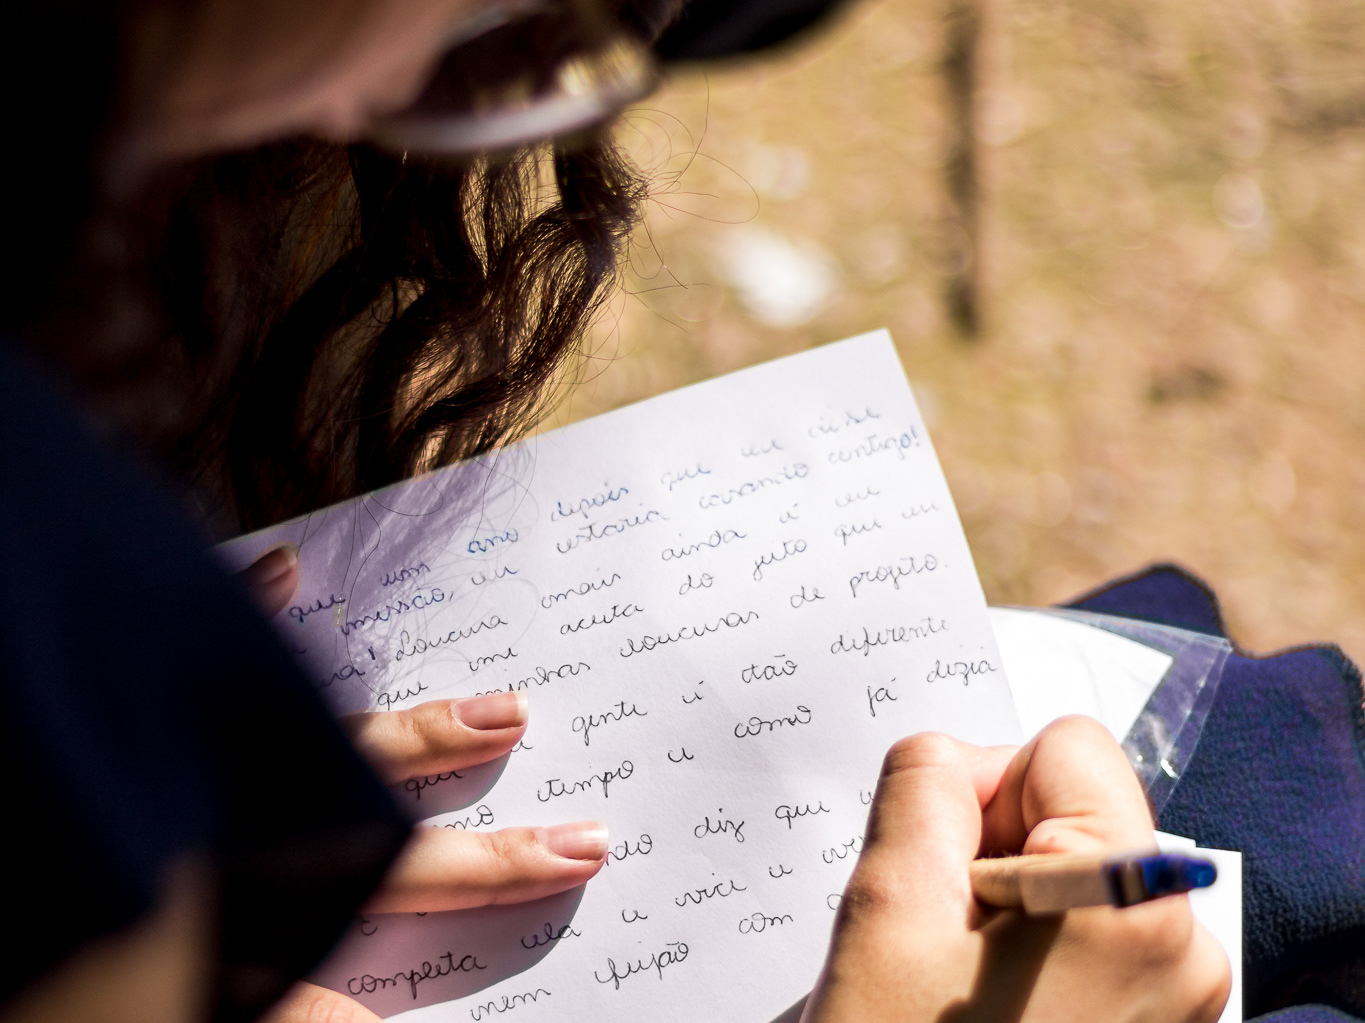 que um ano depois que eu disse
missão, eu estaria casando contigo!
Loucura mais ainda é eu
que me aceita do jeito que eu
minhas loucuras de projeto.
que a gente é tão diferente
tempo e como já dizia
ndo diz que
completa ela e vice e
nem feijão com